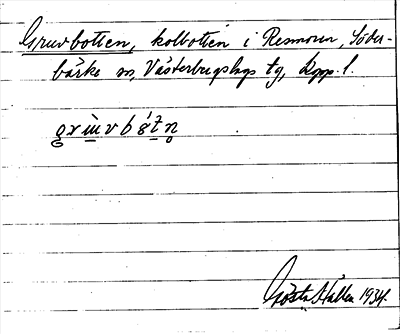 Gruvbotten, kolbotten i Resmoren, Söder-
bärke sn, Västerbergslags tg, Kopp. l.
Gösta Hallen 1934.